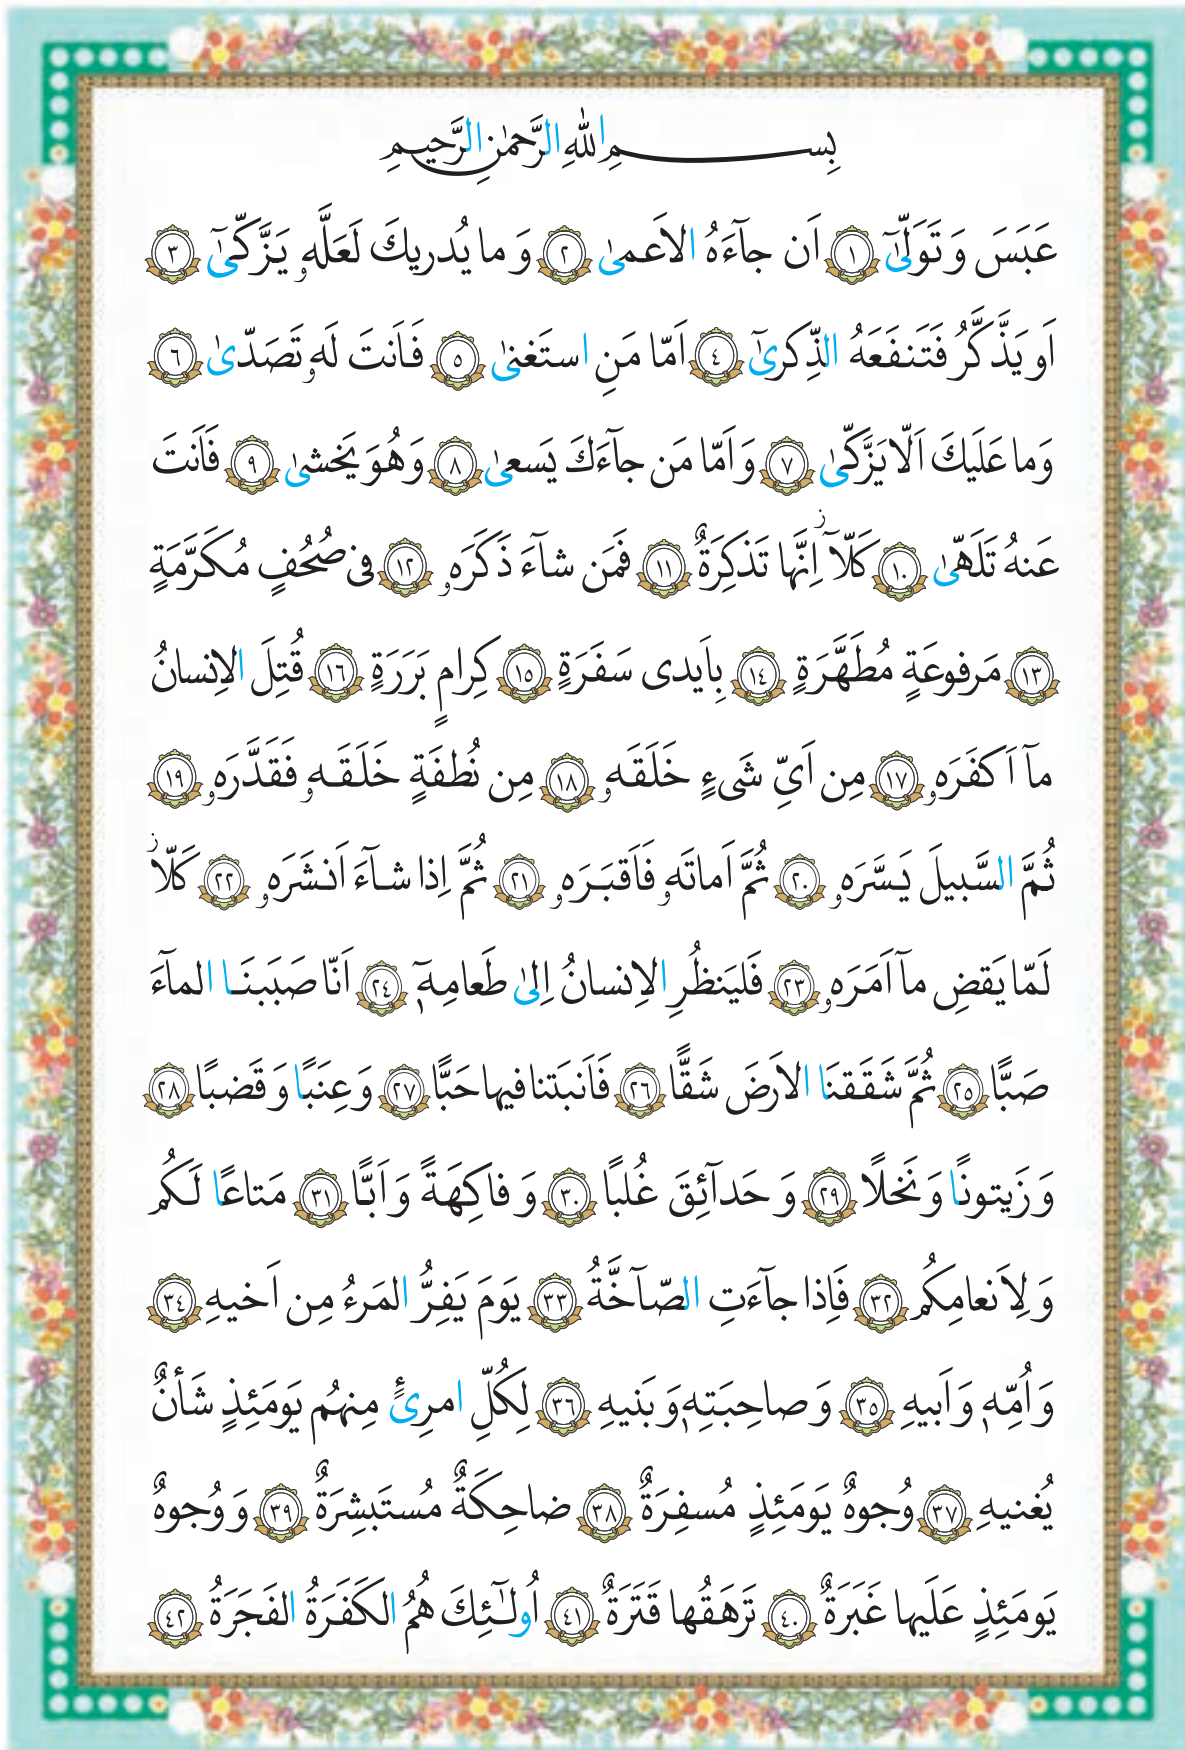 بِسمِ اللهِ الرَّحمٰنِ الرَّحیمِ
عَبَسَ وَ تَوَلّىٰٓ ١ اَن جآءَهُ الاَعمىٰ ٢ وَ ما یُدریكَ لَعَلَّهٗ یَزَّكّىٰٓ ٣
اَو یَذَّكَّرُ فَتَنفَعَهُ الذِّكرىٰٓ ٤ اَمّا مَنِ استَغنىٰ ٥ فَاَنتَ لَهٗ تَصَدّىٰ ٦
وَ ما عَلَیكَ اَلّا یَزَّكّىٰ ٧ وَ اَمّا مَن جآءَكَ یَسعىٰ ٨ وَ هُوَ یَخشىٰ ٩ فَاَنتَ
عَنهُ تَلَهّىٰ ١٠ كَلّآ ز اِنَّها تَذكِرَةٌ ١١ فَمَن شآءَ ذَكَرَهٗ ١٢ فى صُحُفٍ مُكَرَّمَةٍ
١٣ مَرفوعَةٍ مُطَهَّرَةٍ ١٤ بِاَیدى سَفَرَةٍ ١٥ كِرامٍ بَرَرَةٍ ١٦ قُتِلَ الاِنسانُ
مآ اَكفَرَهٗ ١٧ مِن اَىِّ شَىءٍ خَلَقَهٗ ١٨ مِن نُطفَةٍ خَلَقَهٗ فَقَدَّرَهٗ ١٩
ثُمَّ السَّبیلَ یَسَّرَهٗ ٢٠ ثُمَّ اَماتَهٗ فَاَقبَرَهٗ ٢١ ثُمَّ اِذا شآءَ اَنشَرَهٗ ٢٢ كَلّا ز
لَمّا یَقضِ مآ اَمَرَهٗ ٢٣ فَلیَنظُرِ الاِنسانُ اِلىٰ طَعامِهٖٓ ٢٤ اَنّا صَبَبنَا المآءَ
صَبًّا ٢٥ ثُمَّ شَقَقنَا الاَرضَ شَقًّا ٢٦ فَاَنبَتنا فیها حَبًّا ٢٧ وَ عِنَبًا وَ قَضبًا ٢٨
وَ زَیتونًا وَ نَخلًا ٢٩ وَ حَدآئِقَ غُلبًا ٣٠ وَ فاكِهَةً وَ اَبًّا ٣١ مَتاعًا لَكُم
وَ لِاَنعامِكُم ٣٢ فَاِذا جآءَتِ الصّآخَّةُ ٣٣ یَومَ یَفِرُّ المَرءُ مِن اَخیهِ ٣٤
وَ اُمِّهٖ وَ اَبیهِ ٣٥ وَ صاحِبَتِهٖ وَ بَنیهِ ٣٦ لِكُلِّ امرِئٍ مِنهُم یَومَئِذٍ شَأنٌ
یُغنیهِ ٣٧ وُجوهٌ یَومَئِذٍ مُسفِرَةٌ ٣٨ ضاحِكَةٌ مُستَبشِرَةٌ ٣٩ وَ وُجوهٌ
یَومَئِذٍ عَلَیها غَبَرَةٌ ٤٠ تَرهَقُها قَتَرَةٌ ٤١ اُولٰٓئِكَ هُمُ الكَفَرَةُ الفَجَرَةُ ٤٢